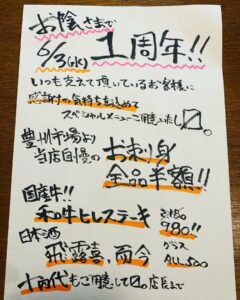 お陰さまで
6/3(水) 1周年!!
いつも支えて頂いているお客様に
感謝の気持ちを込めて
スペシャルメニューご用意いたし〼。
豊洲市場より
当店自慢の お刺身
全品半額!!
国産牛!!
和牛ヒレステーキ 980!!
日本酒 グラス
飛露喜、而今 ALL500
十四代もご用意して〼 店長まで